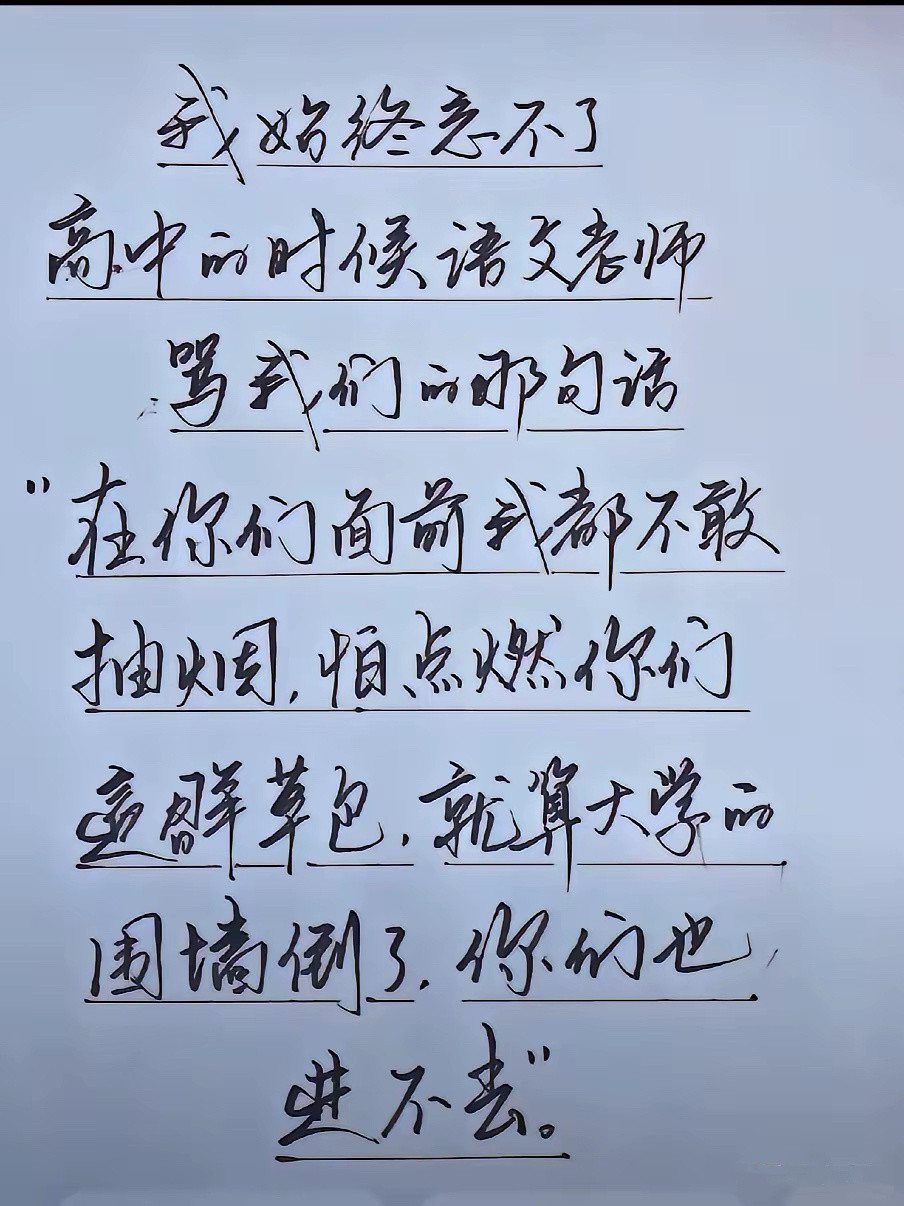 我始终忘不了
高中的时候语文老师
骂我们的那句话
"在你们面前我都不敢
抽烟,怕点燃你们
这群草包,就算大学的
围墙倒了,你们也
进不去"。